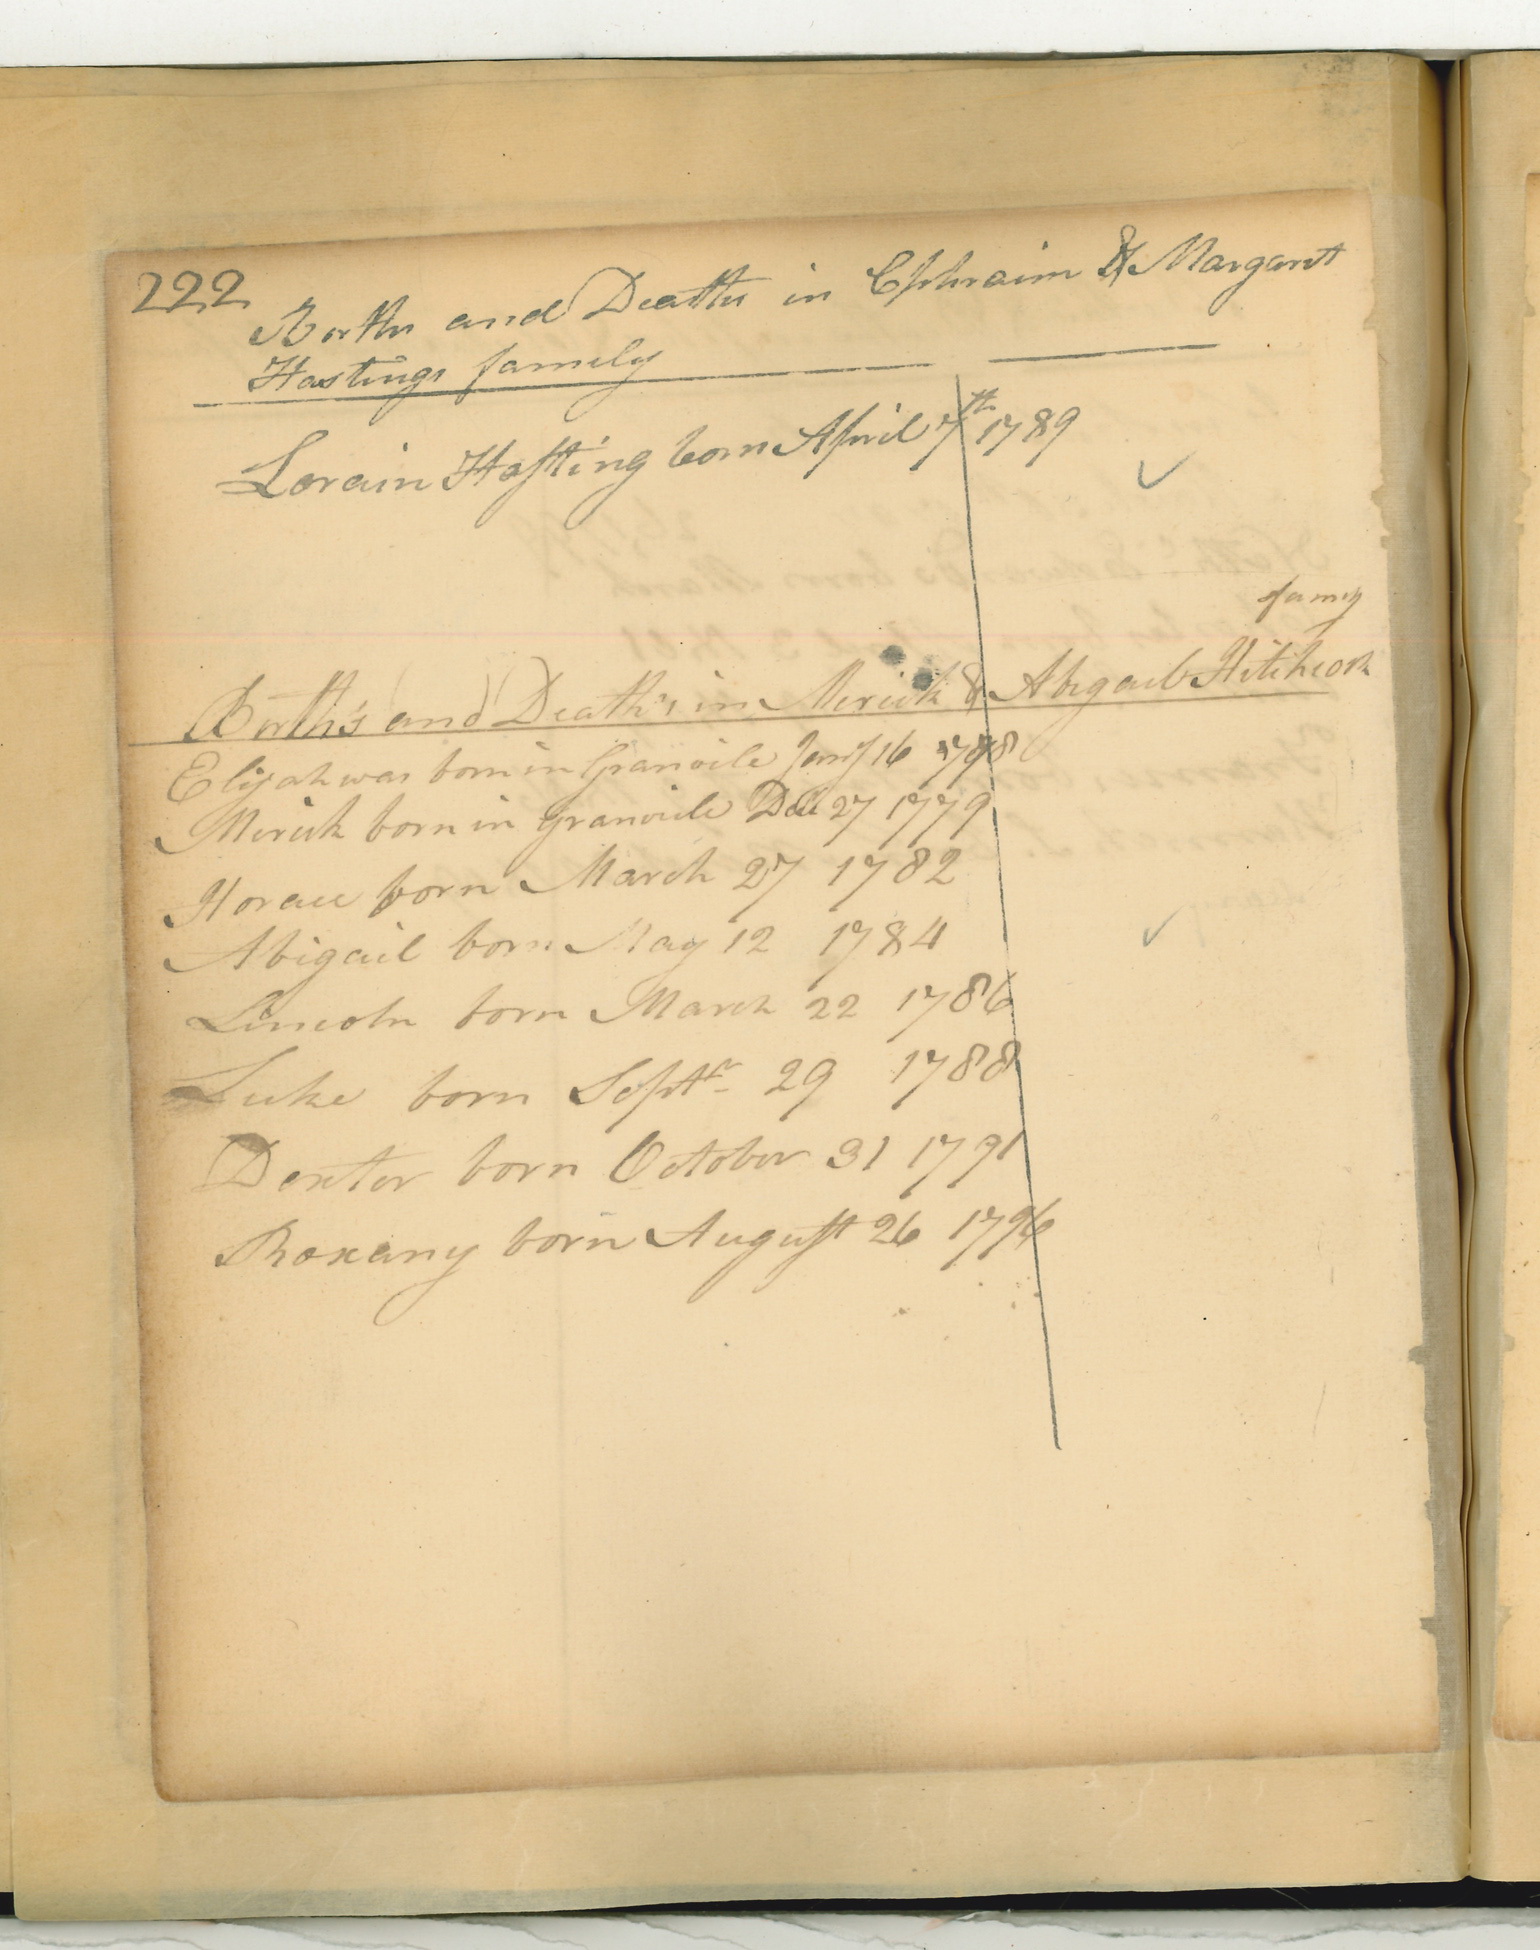 222
Births and Deaths in Ephraim & Margarett
Hastings family
Lorain Hasting born April 7th 1789
famy
Births and Deaths in Merick & Abigail Hitchcock
Elijah was born in Granvile Jany 16
Merick born in Granvile Dec 27 1779
Horace born March 27 1782
Abigail born May 12 1784
Lincoln born March 22 1786
Luke born Septr 29 1788
Dexter born October 31 1791
Roxany born August 26 1796